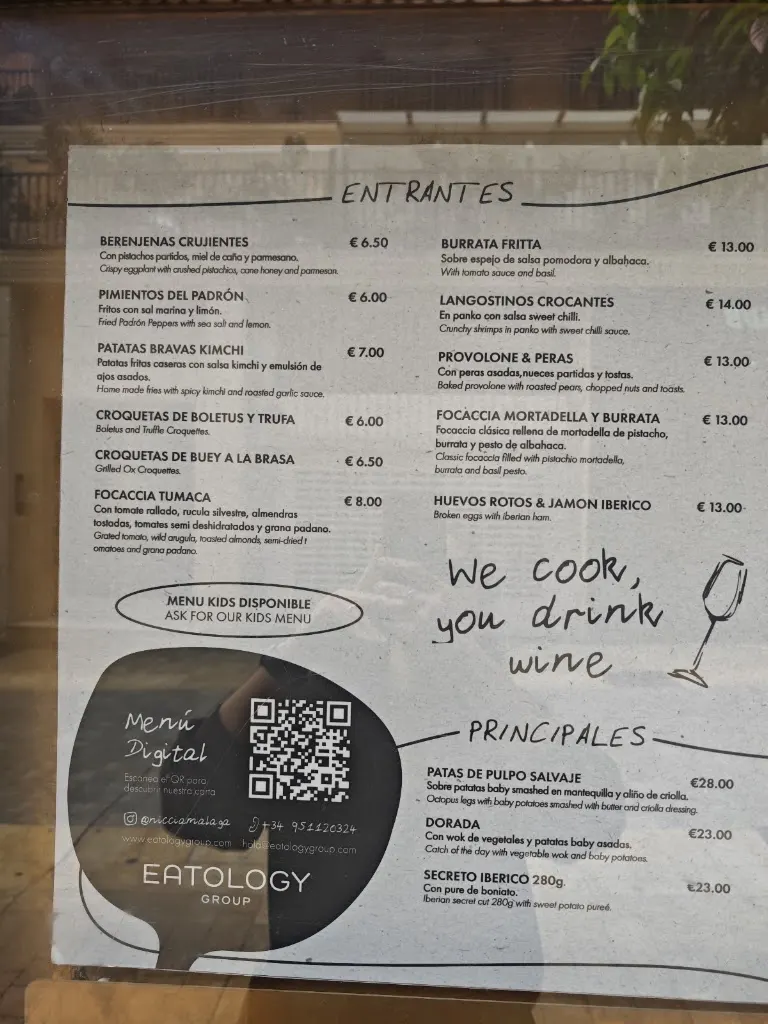 ENTRANTES
BERENJENAS CRUJIENTES € 6.50
Con pistachos partidos, miel de caña y parmesano.
Crispy eggplant with crushed pistachios, cane honey and parmesan.
PIMIENTOS DEL PADRÓN € 6.00
Fritos con sal marina y limón.
Fried Padrón Peppers with sea salt and lemon.
PATATAS BRAVAS KIMCHI € 7.00
Patatas fritas caseras con salsa kimchi y emulsión de
ajos asados.
Home made fries with spicy kimchi and roasted garlic sauce.
CROQUETAS DE BOLETUS Y TRUFA € 6.00
Boletus and Truffle Croquettes.
CROQUETAS DE BUEY A LA BRASA € 6.50
Grilled Ox Croquettes.
FOCACCIA TUMACA € 8.00
Con tomate rallado, rucula silvestre, almendras
tostadas, tomates semi deshidratados y grana padano.
Grated tomato, wild arugula, toasted almonds, semi-dried t
omatoes and grana padano.
BURRATA FRITTA € 13.00
Sobre espejo de salsa pomodora y albahaca.
With tomato sauce and basil.
LANGOSTINOS CROCANTES € 14.00
En panko con salsa sweet chilli.
Crunchy shrimps in panko with sweet chilli sauce.
PROVOLONE & PERAS € 13.00
Con peras asadas,nueces partidas y tostas.
Baked provolone with roasted pears, chopped nuts and toasts.
FOCACCIA MORTADELLA Y BURRATA € 13.00
Focaccia clásica rellena de mortadella de pistacho,
burrata y pesto de albahaca.
Classic focaccia filled with pistachio mortadella,
burrata and basil pesto.
HUEVOS ROTOS & JAMON IBERICO € 13.00
Broken eggs with iberian ham.
MENU KIDS DISPONIBLE
ASK FOR OUR KIDS MENU
We cook,
you drink
wine
Menú
Digital
Escanea el QR para
descubrir nuestra carta
@nicciamalaga +34 951120324
www.eatologygroup.com hola@eatologygroup.com
EATOLOGY
GROUP
PRINCIPALES
PATAS DE PULPO SALVAJE €28.00
Sobre patatas baby smashed en mantequilla y aliño de criolla.
Octopus legs with baby potatoes smashed with butter and criolla dressing.
DORADA €23.00
Con wok de vegetales y patatas baby asadas.
Catch of the day with vegetable wok and baby potatoes.
SECRETO IBERICO 280g. €23.00
Con pure de boniato.
Iberian secret cut 280g with sweet potato pureé.